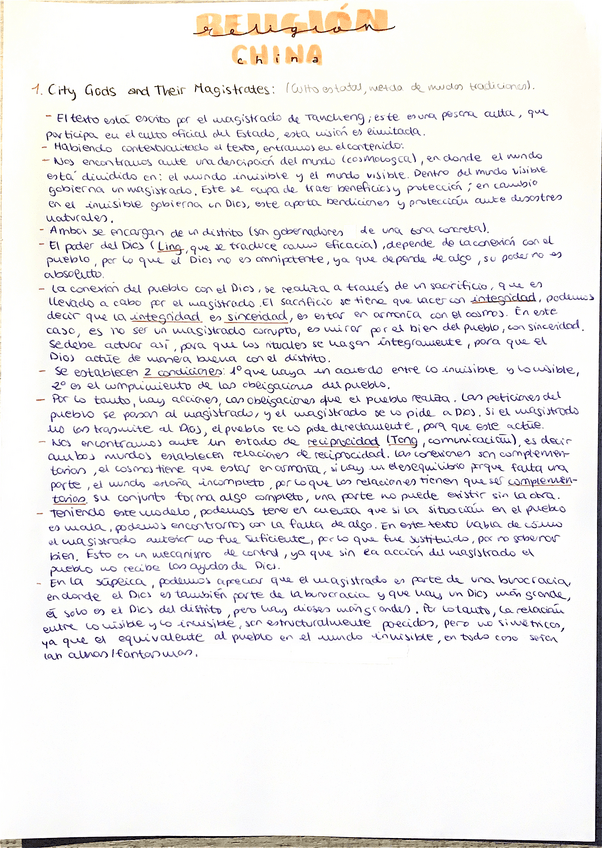 RELIGIÓN
religión
CHINA
china
1. City Gods and Their Magistrates: (Culto estatal, mezcla de muchas tradiciones).
- El texto está escrito por el magistrado de Tancheng; este es una persona culta, que
participa en el culto oficial del Estado, esta visión es limitada.
- Habiendo contextualizado el texto, entramos en el contenido:
- Nos encontramos ante una descripción del mundo (cosmología), en donde el mundo
está dividido en: el mundo invisible y el mundo visible. Dentro del mundo visible
gobierna un magistrado. Este se ocupa de traer beneficios y protección; en cambio
en el invisible gobierna un Dios, este aporta bendiciones y protección ante desastres
naturales.
- Ambos se encargan de un distrito (son gobernadores de una zona concreta).
- El poder del Dios (Ling, que se traduce como eficacia), depende de la conexión con el
pueblo, por lo que el Dios no es omnipotente, ya que depende de algo, su poder no es
absoluto.
- La conexión del pueblo con el Dios, se realiza a través de un sacrificio, que es
llevado a cabo por el magistrado. El sacrificio se tiene que hacer con integridad, podemos
decir que la integridad es sinceridad, es estar en armonía con el cosmos. En este
caso, es no ser un magistrado corrupto, es mirar por el bien del pueblo, con sinceridad.
Se debe actuar así, para que los rituales se hagan íntegramente, para que el
Dios actúe de manera buena con el distrito.
- Se establecen 2 condiciones: 1º que haya un acuerdo entre lo invisible y lo visible,
2º es el cumplimiento de las obligaciones del pueblo.
- Por lo tanto, hay acciones, las obligaciones que el pueblo realiza. Las peticiones del
pueblo se pasan al magistrado, y el magistrado se lo pide a Dios. Si el magistrado
no las transmite al Dios, el pueblo se lo pide directamente, para que este actúe.
- Nos encontramos ante un estado de reciprocidad (Tong, comunicación), es decir
ambos mundos establecen relaciones de reciprocidad. Las conexiones son complemen-
tarias, el cosmos tiene que estar en armonía, si hay un desequilibrio porque falta una
parte, el mundo estaría incompleto, por lo que las relaciones tienen que ser complemen-
tarias. Su conjunto forma algo completo, una parte no puede existir sin la otra.
- Teniendo este modelo, podemos tener en cuenta que si la situación en el pueblo
es mala, podemos encontrarnos con la falta de algo. En este texto habla de cómo
el magistrado anterior no fue suficiente, por lo que fue sustituido, por no gobernar
bien. Esto es un mecanismo de control, ya que sin la acción del magistrado el
pueblo no recibe las ayudas de Dios.
- En la súplica, podemos apreciar que el magistrado es parte de una burocracia,
en donde el Dios es también parte de la burocracia y que hay un Dios más grande,
él solo es el Dios del distrito, pero hay dioses más grandes. Por lo tanto, la relación
entre lo visible y lo invisible, son estructuralmente parecidos, pero no simétricos,
ya que el equivalente al pueblo en el mundo invisible, en todo caso serían
las almas/fantasmas.